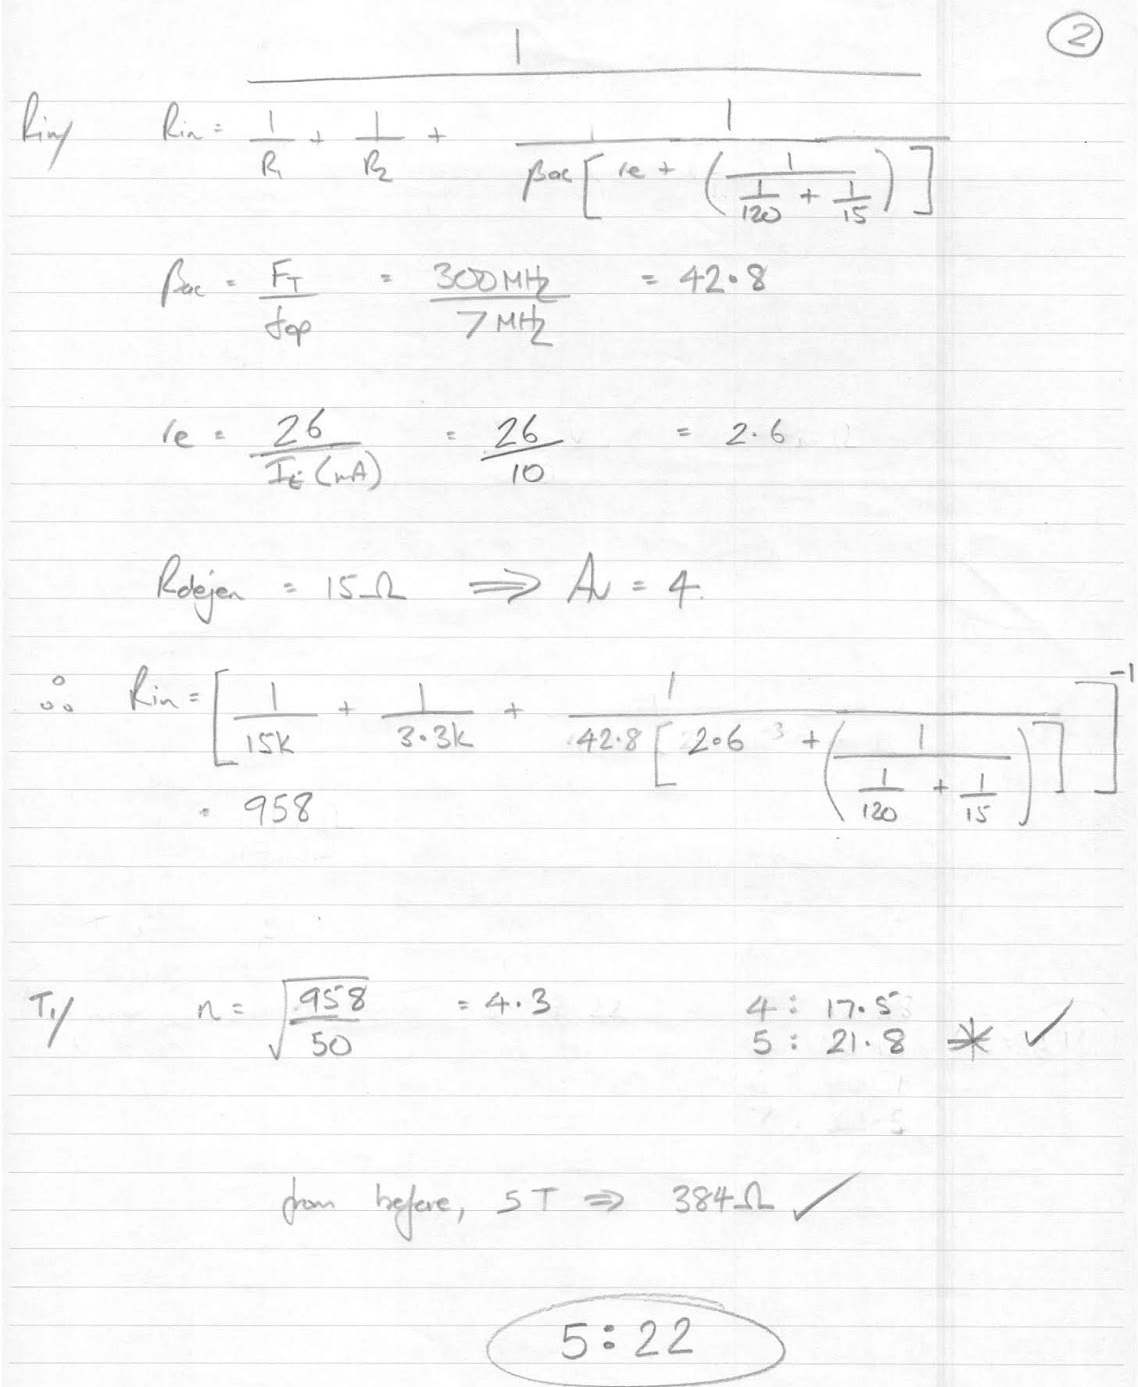 ②
Rin/ Rin = 1 / (1/R1 + 1/R2 + 1/(βac[re + (1/(1/120 + 1/15))]))
βac = FT/fop = 300MHz/7MHz = 42.8
re = 26/IE(mA) = 26/10 = 2.6
Rdegen = 15Ω ⇒ Av = 4.
∴ Rin = [1/15k + 1/3.3k + 1/(42.8[2.6 + (1/(1/120 + 1/15))])]^-1
= 958
T1/ n = √(958/50) = 4.3 4 : 17.5
5 : 21.8 * ✓
from before, 5T ⇒ 384Ω ✓
5:22